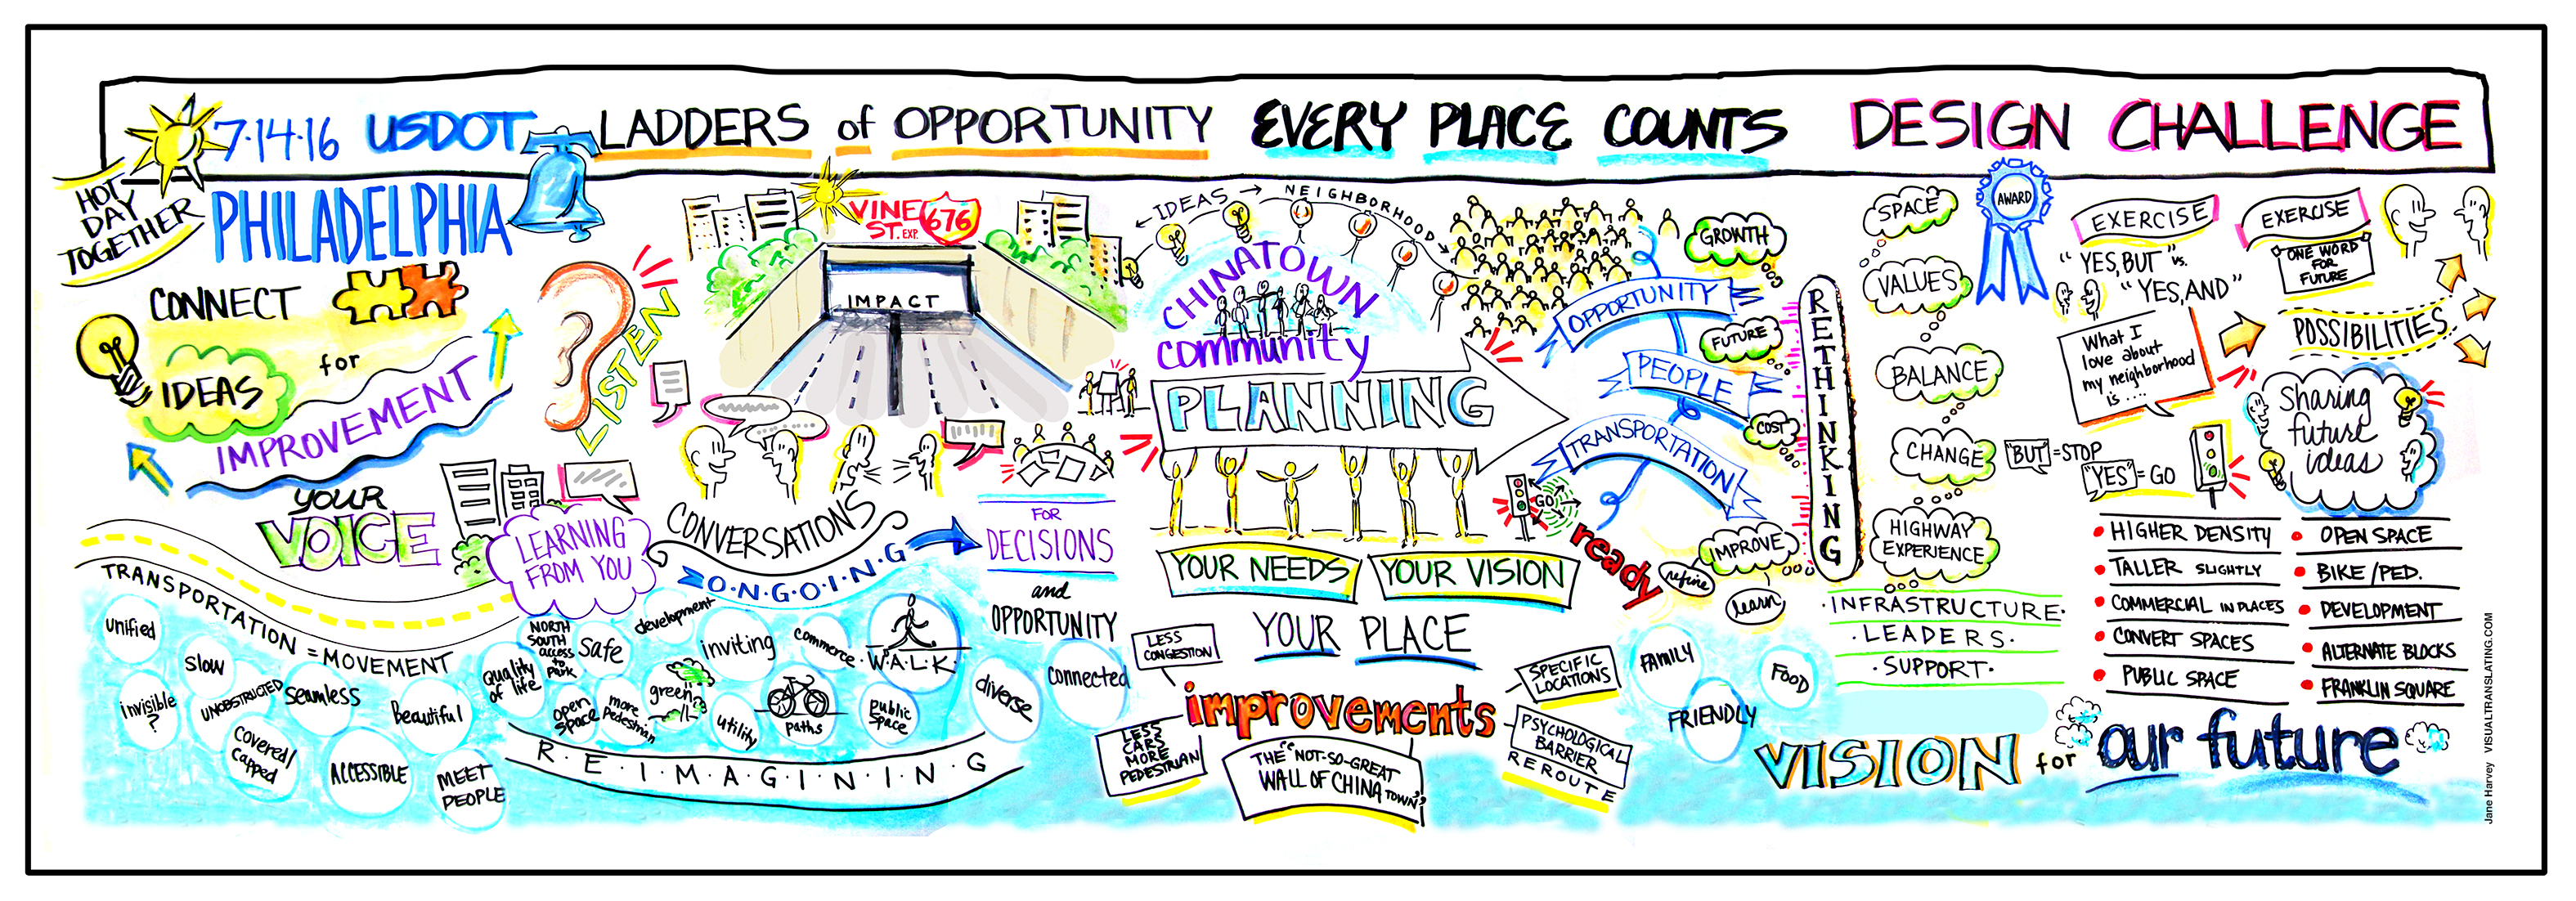 7·14·16 USDOT LADDERS of OPPORTUNITY EVERY PLACE COUNTS DESIGN CHALLENGE
HOT
DAY
TOGETHER
PHILADELPHIA
CONNECT
IDEAS
for
IMPROVEMENT
LISTEN
YOUR
VOICE
LEARNING
FROM YOU
TRANSPORTATION = MOVEMENT
VINE
ST. EXP.
676
IMPACT
CONVERSATIONS
O·N·G·O·I·N·G
FOR
DECISIONS
and
OPPORTUNITY
unified
slow
invisible
?
UNOBSTRUCTED
Seamless
covered/
capped
ACCESSIBLE
beautiful
MEET
PEOPLE
Quality
of life
NORTH
SOUTH
access
to
Park
Safe
development
inviting
commerce
·W·A·L·K·
open
space
more
Pedestrian
green
utility
paths
public
space
diverse
connected
R·E·I·M·A·G·I·N·I·N·G
IDEAS
NEIGHBORHOOD
CHINATOWN
community
PLANNING
YOUR NEEDS
YOUR VISION
YOUR PLACE
LESS
CONGESTION
improvements
LESS
CARS
MORE
PEDESTRIAN
THE "NOT-SO-GREAT
WALL OF CHINATOWN"
SPECIFIC
LOCATIONS
PSYCHOLOGICAL
BARRIER
REROUTE
GO
ready
OPPORTUNITY
PEOPLE
TRANSPORTATION
GROWTH
FUTURE
COST
IMPROVE
refine
learn
RETHINKING
FAMILY
FRIENDLY
FOOD
SPACE
VALUES
BALANCE
CHANGE
HIGHWAY
EXPERIENCE
·INFRASTRUCTURE·
·LEADERS·
·SUPPORT·
AWARD
EXERCISE
"YES, BUT" vs.
"YES, AND"
What I
love about
my neighborhood
is ....
"BUT"=STOP
"YES"=GO
EXERCISE
ONE WORD
FOR
FUTURE
POSSIBILITIES
Sharing
future
ideas
• HIGHER DENSITY
• TALLER SLIGHTLY
• COMMERCIAL IN PLACES
• CONVERT SPACES
• PUBLIC SPACE
• OPEN SPACE
• BIKE/PED.
• DEVELOPMENT
• ALTERNATE BLOCKS
• FRANKLIN SQUARE
VISION for our future
Jane Harvey VISUALTRANSLATING.COM